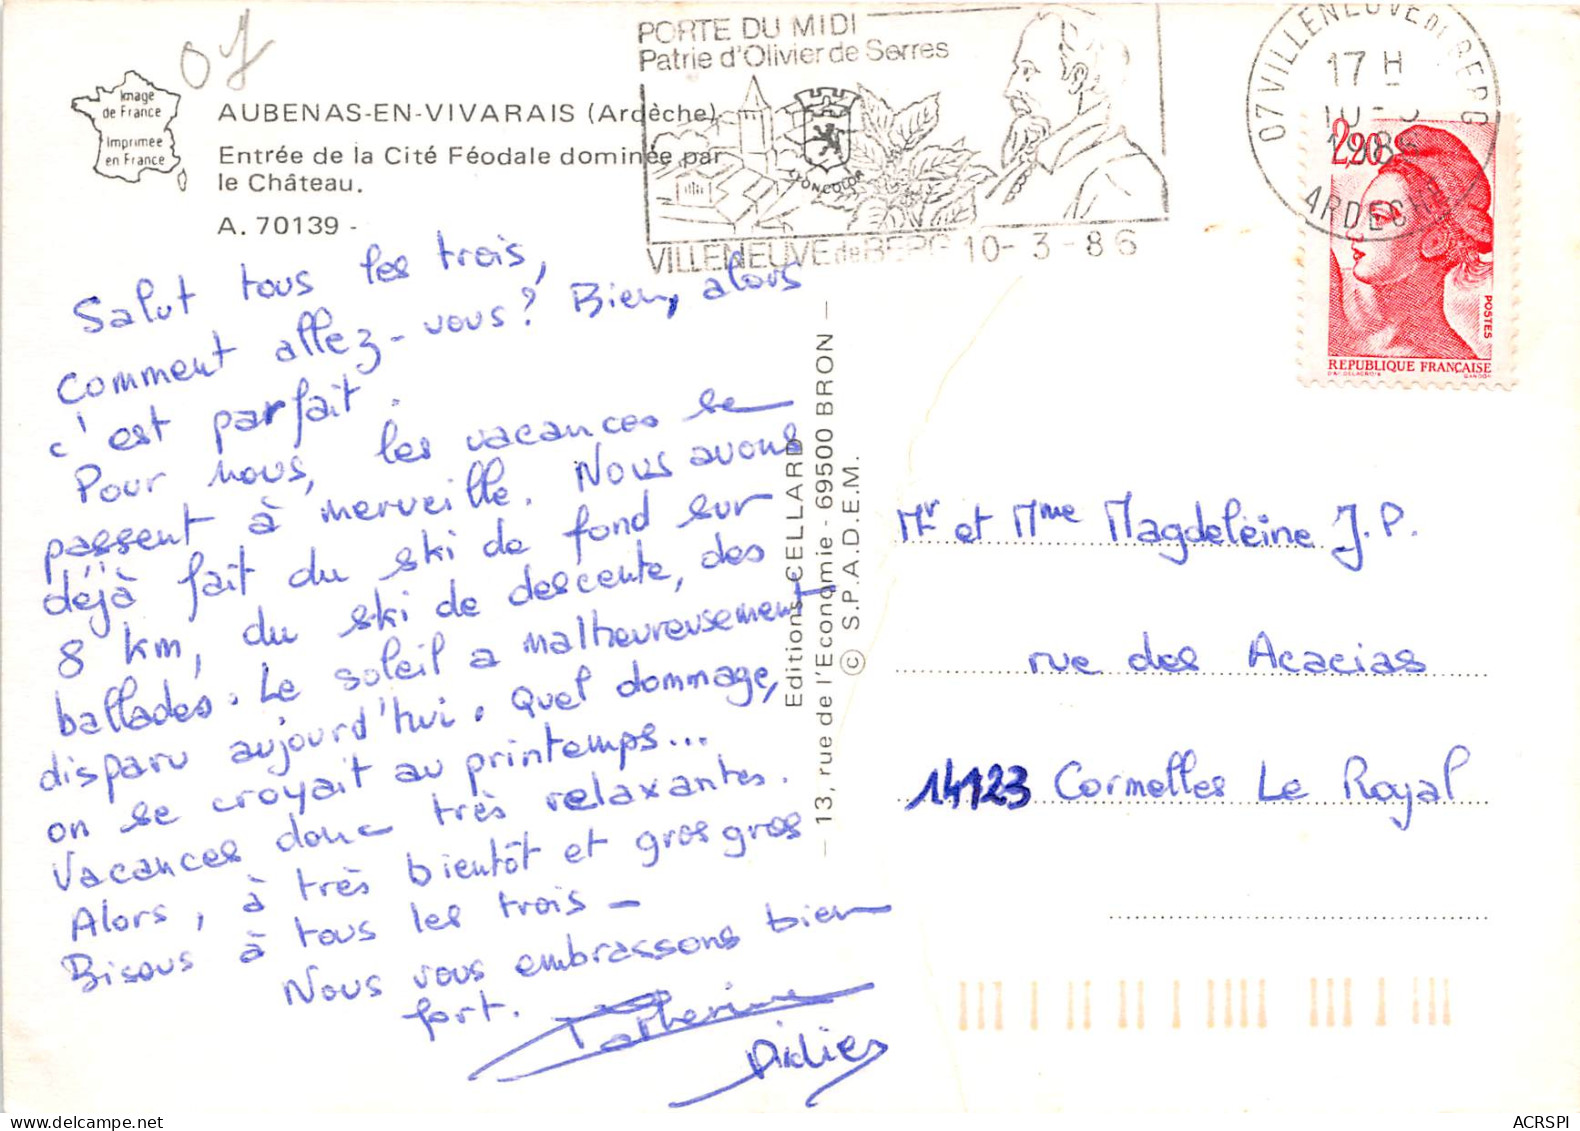 07
Image
de France
Imprimée
en France
AUBENAS-EN-VIVARAIS (Ardèche)
Entrée de la Cité Féodale dominée par
le Château.
A. 70139 -
PORTE DU MIDI
Patrie d'Olivier de Serres
LYONCOLOR
VILLENEUVE de BERG 10-3-86
07 VILLENEUVE DE BERG
17 H
10-3
1986
ARDECHE
2,20
POSTES
REPUBLIQUE FRANÇAISE
D'AP. DELACROIX GANDON
Salut tous les trois,
Comment allez-vous? Bien, alors
c'est parfait.
Pour nous, les vacances se
passent à merveille. Nous avons
déjà fait du ski de fond sur
8 km, du ski de descente, des
ballades. Le soleil a malheureusement
disparu aujourd'hui. Quel dommage,
on se croyait au printemps...
Vacances donc très relaxantes.
Alors, à très bientôt et gros gros
Bisous à tous les trois -
Nous vous embrassons bien
fort.
Catherine
Didier
Editions CELLARD
— 13, rue de l'Economie - 69500 BRON —
© S.P.A.D.E.M.
Mr et Mme Magdeleine J.P.
rue des Acacias
14123 Cormelles Le Royal
ACRSPI